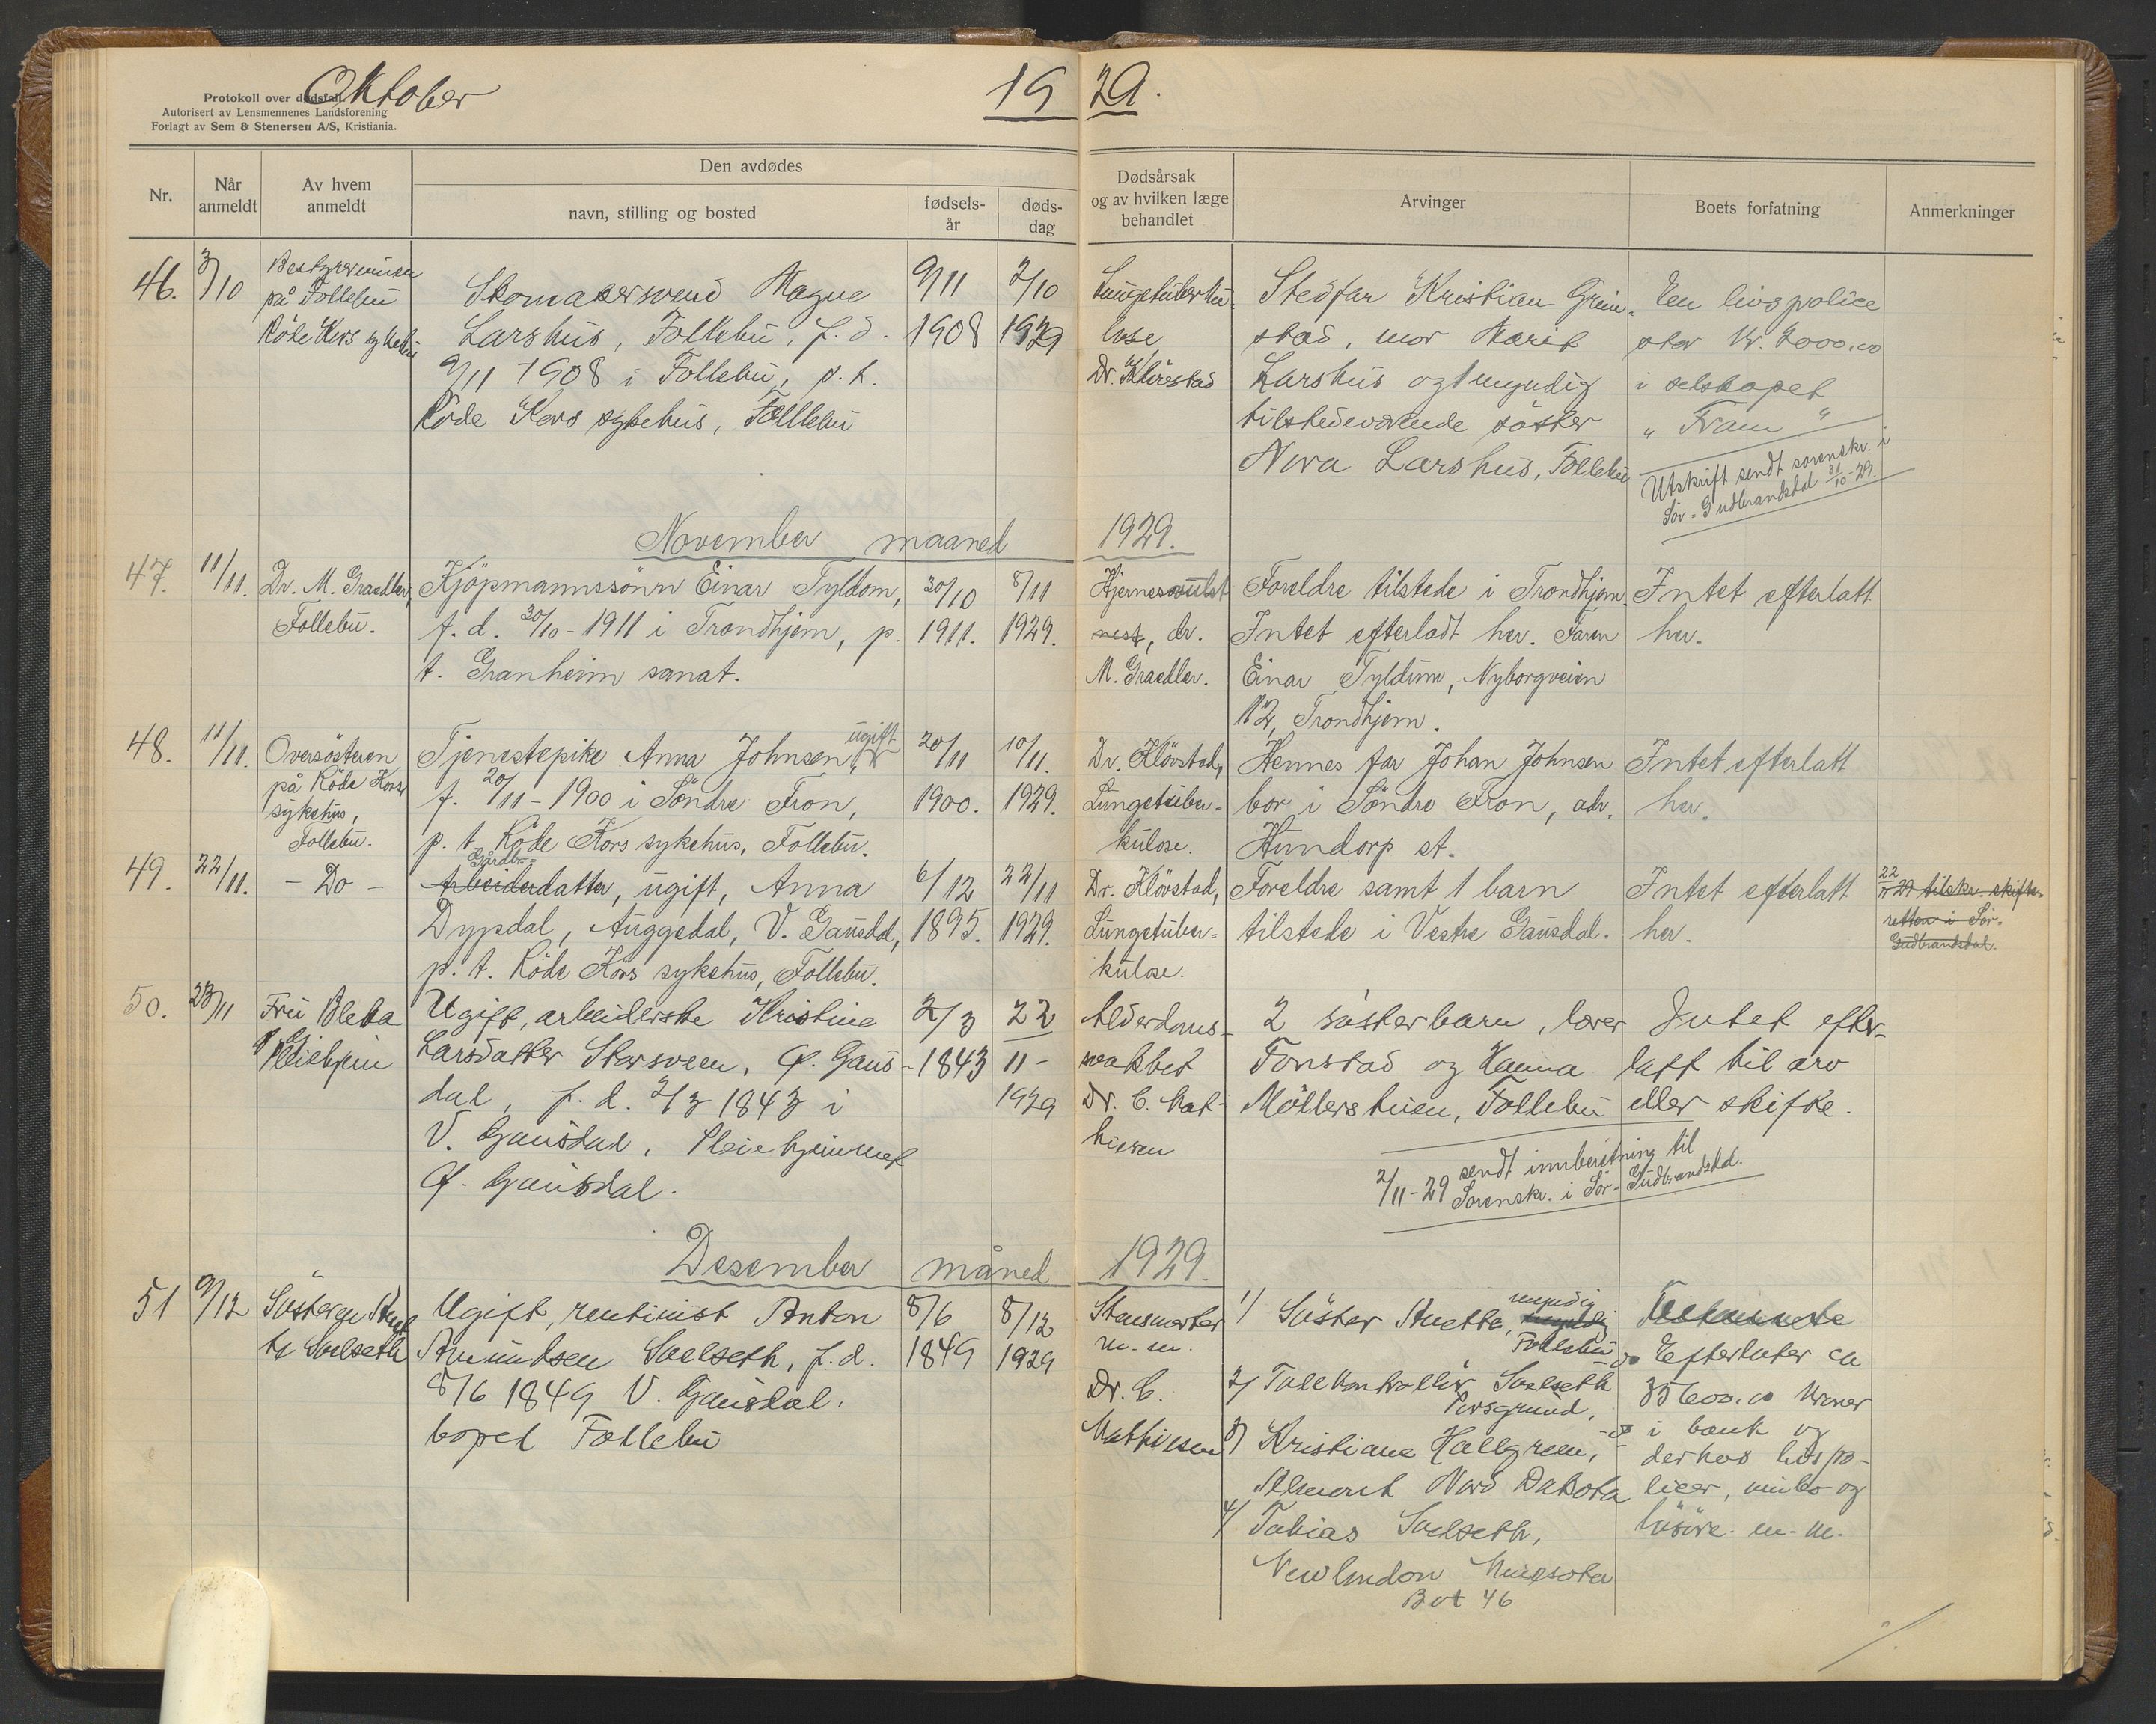 Oktober 1929.
Protokoll over dødsfall.
Autorisert av Lensmennenes Landsforening
Forlagt av Sem & Stenersen A/S, Kristiania.
Nr.
Når anmeldt
Av hvem anmeldt
Den avdødes
navn, stilling og bosted
fødsels-år
døds-dag
Dødsårsak og av hvilken læge behandlet
Arvinger
Boets forfatning
Anmerkninger
46.
3/10
på Follebu
Røde Kors sykehus
Skomakersvend Magne
Larshus, Follebu, f. d.
9/11 1908 i Follebu, p. t.
Røde Kors sykehus, Follebu
9/11
1908
2/10
1929
Lungetuberku-
lose
Dr. Kløvstad
Stedfar Kristian Grim-
stad, mor Marit
Larshus og 1 myndig
tilstedeværende søster
Nora Larshus, Follebu
En livspolice
stor kr. 2000,00
i selskapet
"Fram"
Utskrift sendt sorenskr. i
Sør-Gudbrandsdal 31/10-29.
November maaned 1929.
47.
11/11.
Dr. M. Graedler,
Follebu.
Kjöpmannssönn Einar Tyldom,
f. d. 30/10-1911 i Trondhjem, p.
t. Granheim sanat.
30/10
1911.
8/11
1929.
Hjernesvulst
, dr.
M. Graedler.
Foreldre tilstede i Trondhjem.
Intet efterladt her. Faren
Einar Tyldum, Nyborgveien
12, Trondhjem.
Intet efterlatt
her.
48.
11/11.
Oversösteren
på Röde Kors
sykehus,
Follebu.
Tjenestepike Anna Johnsen, ugift
f. 20/11-1900 i Söndre Fron,
p. t. Röde Kors sykehus, Follebu.
20/11
1900.
10/11.
1929.
Dr. Klövstad,
Lungetuber-
kulose.
Hennes far Johan Johnsen
bor i Söndre Fron, adr.
Hundorp st.
Intet efterlatt
her.
49.
22/11.
- Do -
Gårdbr.-
Arbeiderdatter, ugift, Anna
Dypdal, Auggedal, V. Gausdal,
p. t. Röde Kors sykehus, Follebu.
6/12
1895.
22/11
1929.
Dr. Klövstad,
Lungetuber-
kulose.
Foreldre samt 1 barn
tilstede i Vestre Gausdal.
Intet efterlatt
her.
22/11 29 tilskr. skifte-
retten i Sør-
Gudbrandsdal.
50.
23/11
Fru Bleka
Pleiehjem
Ugift, arbeiderske Kristine
Larsdatter Storsveen, Ø. Gaus-
dal, f. d. 2/3 1843 i
V. Gausdal, Pleiehjemmet
Ø. Gausdal.
2/3
1843
22
11 -
1929
Alderdoms-
svakhet
Dr. C. Mat-
hiesen
2 søsterbarn, lærer
Fonstad og Hanna
Möllerstuen, Follebu
Intet efter-
latt til arv
eller skifte.
2/11-29 sendt innberetning til
Sorenskr. i Sør-Gudbrandsdal.
Desember måned 1929.
51
9/12
Søsteren Anet-
te Sælseth
Ugift, rentinist Anton
Amundsen Sælseth, f. d.
8/6 1849 V. Gausdal.
bopel Follebu
8/6
1849
8/12
1929
m. m.
Dr. C.
Mathiesen
1/ Søster Anette, myndig
Follebu
2/ Tollkontrollør Sælseth
Porsgrund,
3/ Kristiane Hallgreen,
Almont Nord Dakota
4/ Tobias Sælseth,
New London Minesota
Box 46
Efterlater ca
35600,00 kroner
i bank og
derhos livspo-
licer, innbo og
løsøre m. m.